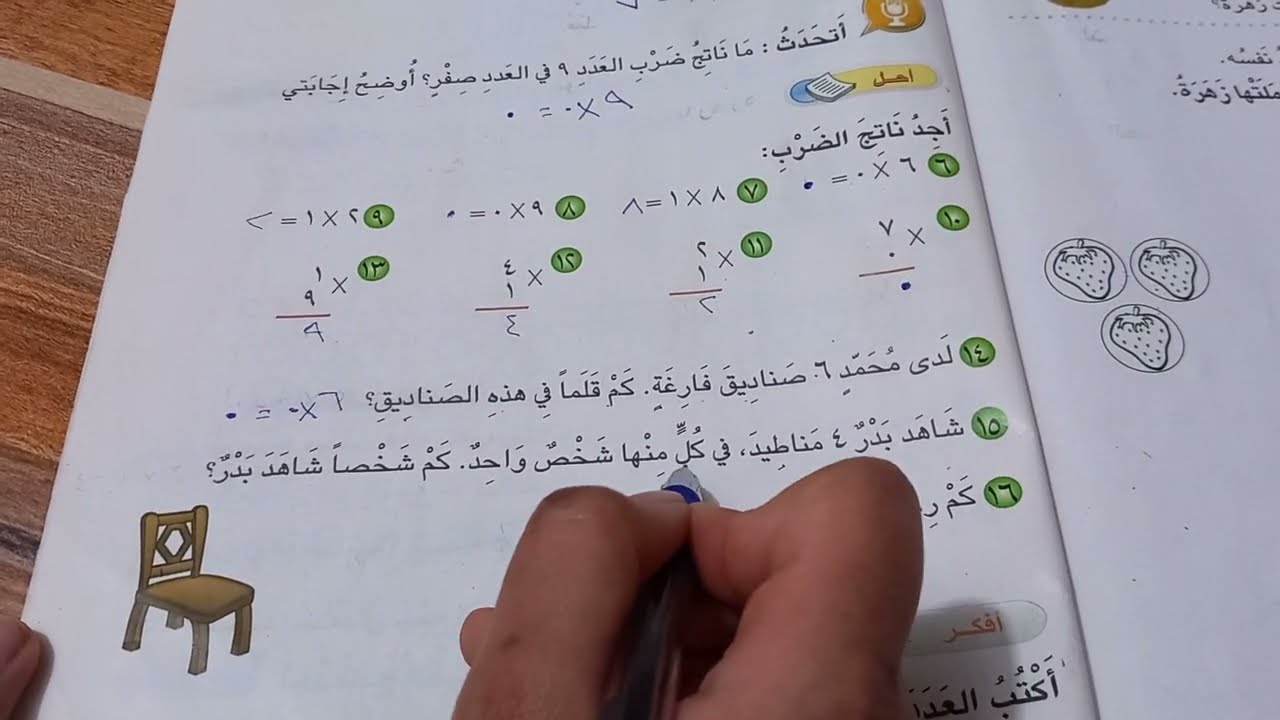 زَهرة؟
نَفسُه.
مَلَتْها زَهَرَةُ.
أَتَحَدَثُ : مَا نَاتِجُ ضَرْبِ العَدَدِ ٩ في العَددِ صِفْرٍ؟ أُوضِحُ إِجابَتي
٩ × ٠ = ٠
احل
أَجِدُ نَاتِجَ الضَرْبِ:
٦ ٦ × ٠ = ٠
٧ ٨ × ١ = ٨
٨ ٩ × ٠ = ٠
٩ ٢ × ١ = ٢
١٠ ٧ × ٠ ٠
١١ ٢ × ١ ٢
١٢ ٤ × ١ ٤
١٣ ١ × ٩ ٩
١٤ لَدى مُحَمّدٍ ٦ صَنادِيقَ فَارِغَةٍ. كَمْ قَلَماً فِي هذهِ الصَنادِيقِ؟ ٦ × ٠ = ٠
١٥ شَاهَد بَدْرٌ ٤ مَناطِيدَ، في كُلٍّ مِنْها شَخْصٌ وَاحِدٌ. كَمْ شَخْصاً شَاهَدَ بَدْرٌ؟
١٦ كَمْ
أفكر
أَكْتُبُ